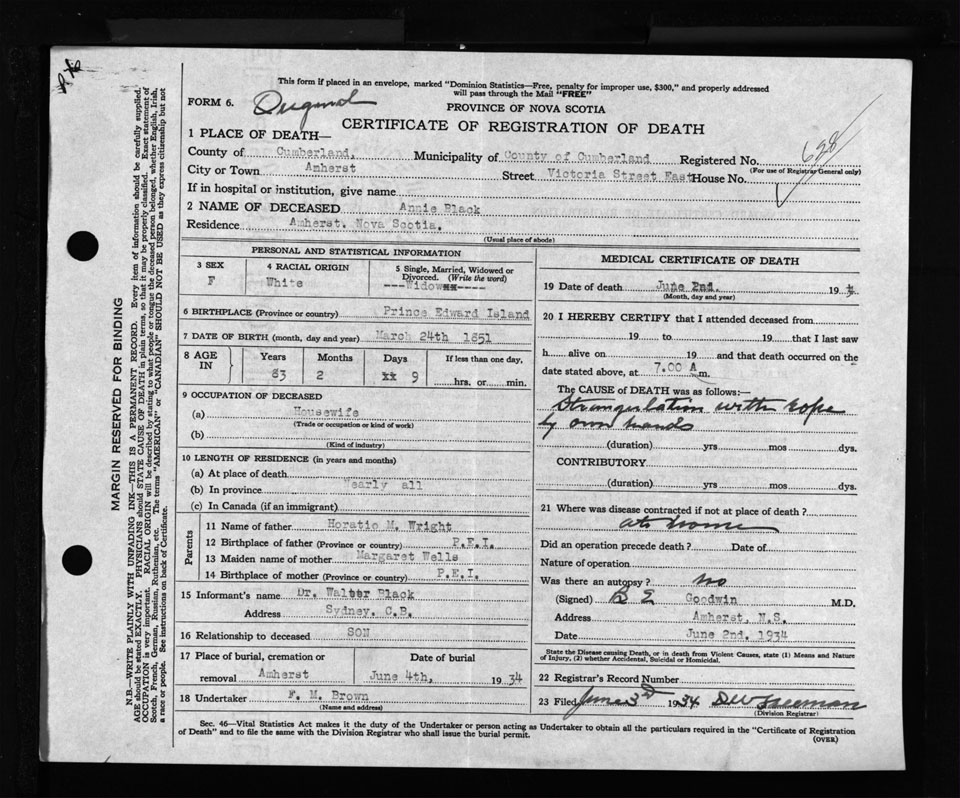 This form if placed in an envelope, marked "Dominion Statistics—Free, penalty for improper use, $300," and properly addressed
will pass through the Mail "FREE"
FORM 6.
PROVINCE OF NOVA SCOTIA
CERTIFICATE OF REGISTRATION OF DEATH
688
1 PLACE OF DEATH—
County of Cumberland, Municipality of County of Cumberland Registered No.
(For use of Registrar General only)
City or Town Amherst Street Victoria Street East House No.
If in hospital or institution, give name
2 NAME OF DECEASED Annie Black
Residence Amherst. Nova Scotia.
(Usual place of abode)
PERSONAL AND STATISTICAL INFORMATION
3 SEX F
4 RACIAL ORIGIN White
5 Single, Married, Widowed or Divorced. (Write the word)
---Widow----
6 BIRTHPLACE (Province or country) Prince Edward Island
7 DATE OF BIRTH (month, day and year) March 24th 1851
8 AGE IN
Years Months Days If less than one day,
83 2 9 hrs. or min.
9 OCCUPATION OF DECEASED
(a) Housewife
(Trade or occupation or kind of work)
(b)
(Kind of industry)
10 LENGTH OF RESIDENCE (in years and months)
(a) At place of death
(b) In province early all
(c) In Canada (if an immigrant)
Parents
11 Name of father Horatio M. Wright
12 Birthplace of father (Province or country) P.E.I.
13 Maiden name of mother Margaret Wells
14 Birthplace of mother (Province or country) P.E.I.
15 Informant's name Dr. Walter Black
Address Sydney. C.B.
16 Relationship to deceased SON
17 Place of burial, cremation or removal Amherst
Date of burial June 4th, 1934
18 Undertaker F. M. Brown
(Name and address)
MEDICAL CERTIFICATE OF DEATH
19 Date of death June 2nd. 193
(Month, day and year)
20 I HEREBY CERTIFY that I attended deceased from
19 to 19 that I last saw
h alive on 19 and that death occurred on the
date stated above, at 7.00 A m.
The CAUSE of DEATH was as follows:—
Strangulation with rope
by own hands
(duration) yrs mos dys.
CONTRIBUTORY
(duration) yrs mos dys.
21 Where was disease contracted if not at place of death?
at home
Did an operation precede death? Date of
Nature of operation
Was there an autopsy? no
(Signed) B E Goodwin M.D.
Address Amherst, N.S.
Date June 2nd. 1934
State the Disease causing Death, or in death from Violent Causes, state (1) Means and Nature
of Injury, (2) whether Accidental, Suicidal or Homicidal.
22 Registrar's Record Number
23 Filed June 3rd 1934
(Division Registrar)
Sec. 46—Vital Statistics Act makes it the duty of the Undertaker or person acting as Undertaker to obtain all the particulars required in the "Certificate of Registration
of Death" and to file the same with the Division Registrar who shall issue the burial permit.
(OVER)
MARGIN RESERVED FOR BINDING
N.B.—WRITE PLAINLY WITH UNFADING INK—THIS IS A PERMANENT RECORD. Every item of information should be carefully supplied.
AGE should be stated EXACTLY. PHYSICIANS should STATE CAUSE OF DEATH in plain terms, so that it may be properly classified. Exact statement of
OCCUPATION is very important. RACIAL ORIGIN will be described by stating to what people or tongue the deceased person belonged, whether English, Irish,
Scotch, French, German, Russian, Ruthenian, etc. The terms "AMERICAN" or "CANADIAN" SHOULD NOT BE USED as they express citizenship but not
a race or people. See instructions on back of Certificate.